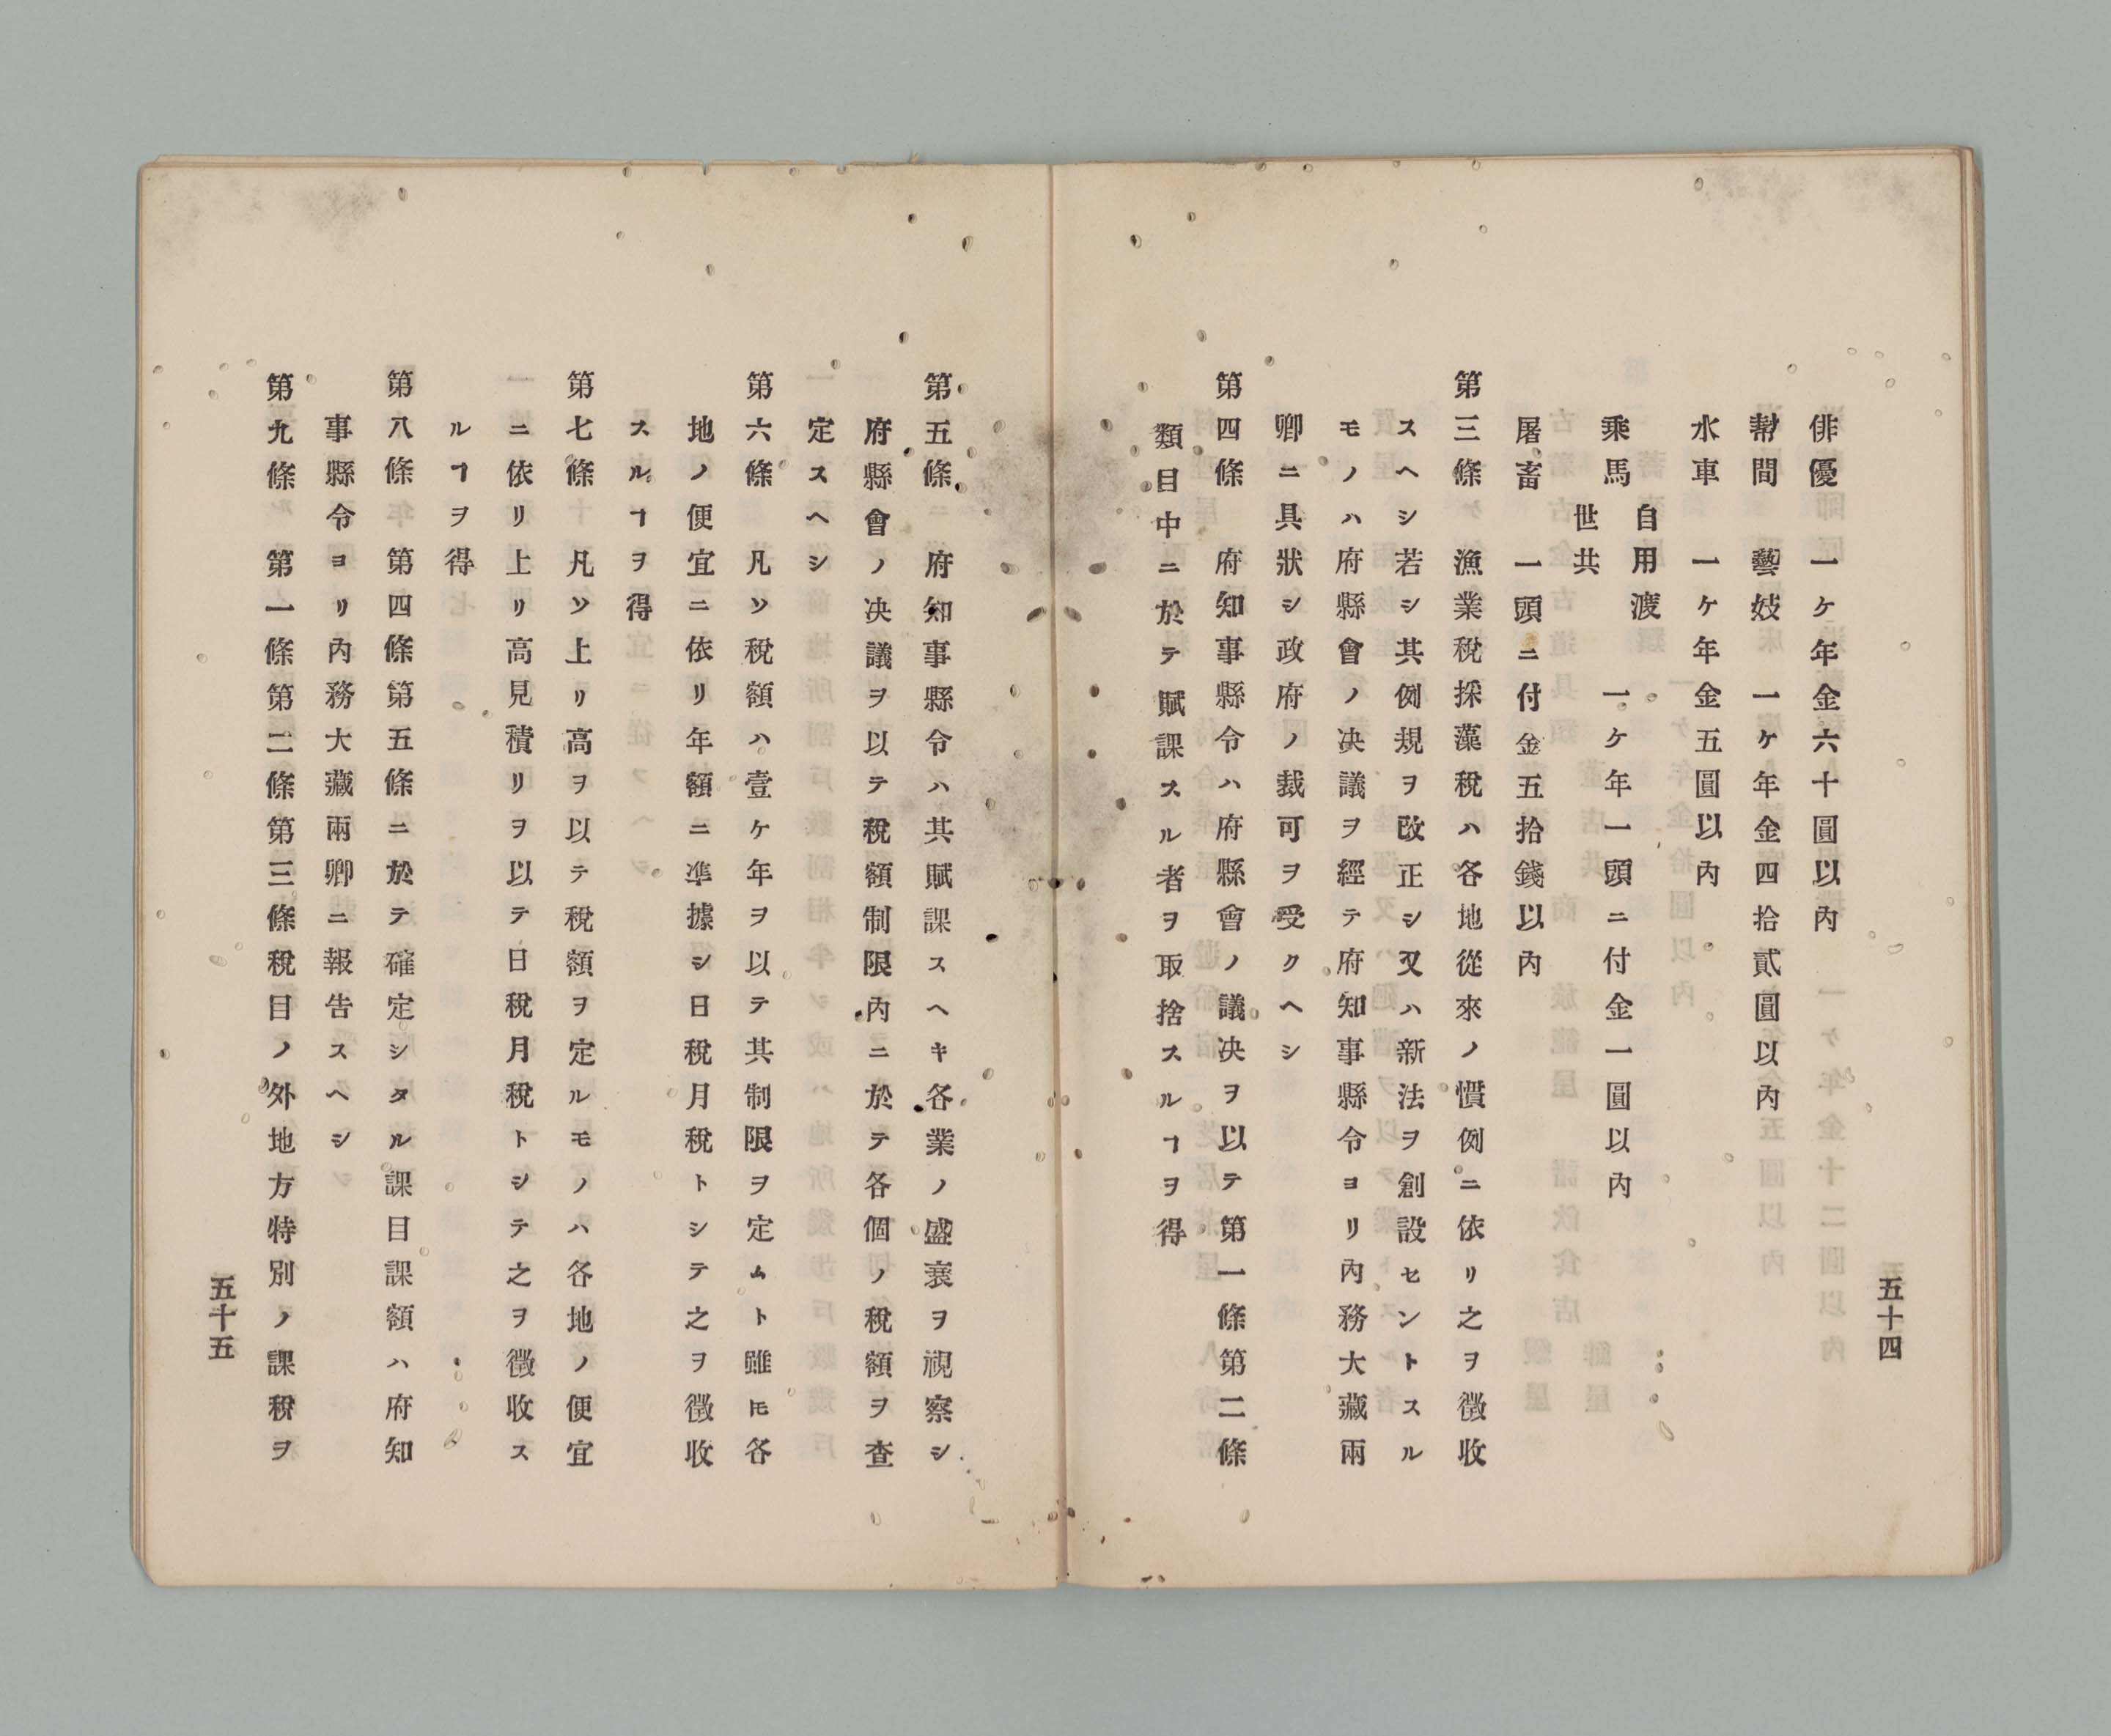 俳優 一ケ年金六十圓以內
幇間 藝妓 一ケ年金四拾貳圓以內
水車 一ケ年金五圓以內
乘馬 自用渡世共 一ケ年一頭ニ付金一圓以內
屠畜 一頭ニ付金五拾錢以內
第三條 漁業稅採藻稅ハ各地從來ノ慣例ニ依リ之ヲ徵收
スヘシ若シ其例規ヲ改正シ又ハ新法ヲ創設セントスル
モノハ府縣會ノ决議ヲ經テ府知事縣令ヨリ內務大藏兩
卿ニ具狀シ政府ノ裁可ヲ受クヘシ
第四條 府知事縣令ハ府縣會ノ議决ヲ以テ第一條第二條
類目中ニ於テ賦課スル者ヲ取捨スルヿヲ得
五十四
第五條 府知事縣令ハ其賦課スヘキ各業ノ盛衰ヲ視察シ
府縣會ノ决議ヲ以テ稅額制限內ニ於テ各個ノ稅額ヲ查
定スヘシ
第六條 凡ソ稅額ハ壹ケ年ヲ以テ其制限ヲ定ムト雖𪜈各
地ノ便宜ニ依リ年額ニ準據シ日稅月稅トシテ之ヲ徵收
スルヿヲ得
第七條 凡ソ上リ高ヲ以テ稅額ヲ定ルモノハ各地ノ便宜
ニ依リ上リ高見積リヲ以テ日稅月稅トシテ之ヲ徵收ス
ルヿヲ得
第八條 第四條第五條ニ於テ確定シタル課目課額ハ府知
事縣令ヨリ內務大藏兩卿ニ報告スヘシ
第九條 第一條第二條第三條稅目ノ外地方特別ノ課稅ヲ
五十五